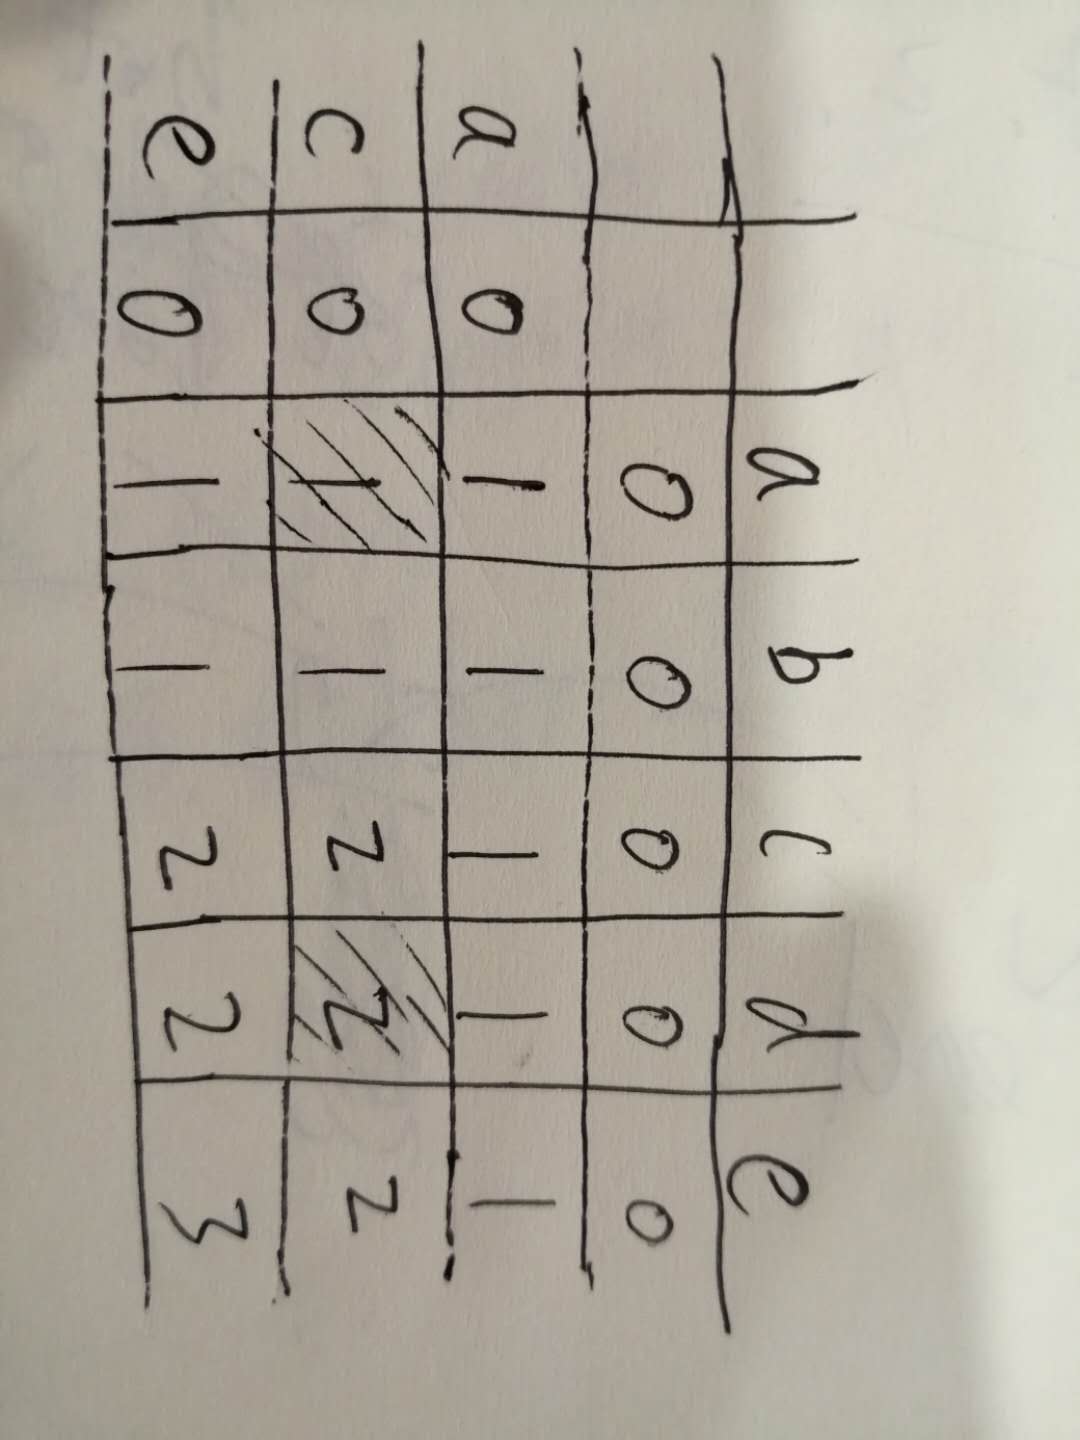 a b c d e
0 0 0 0 0
a 0 1 1 1 1 1
c 0 1 1 2 2 2
e 0 1 1 2 2 3